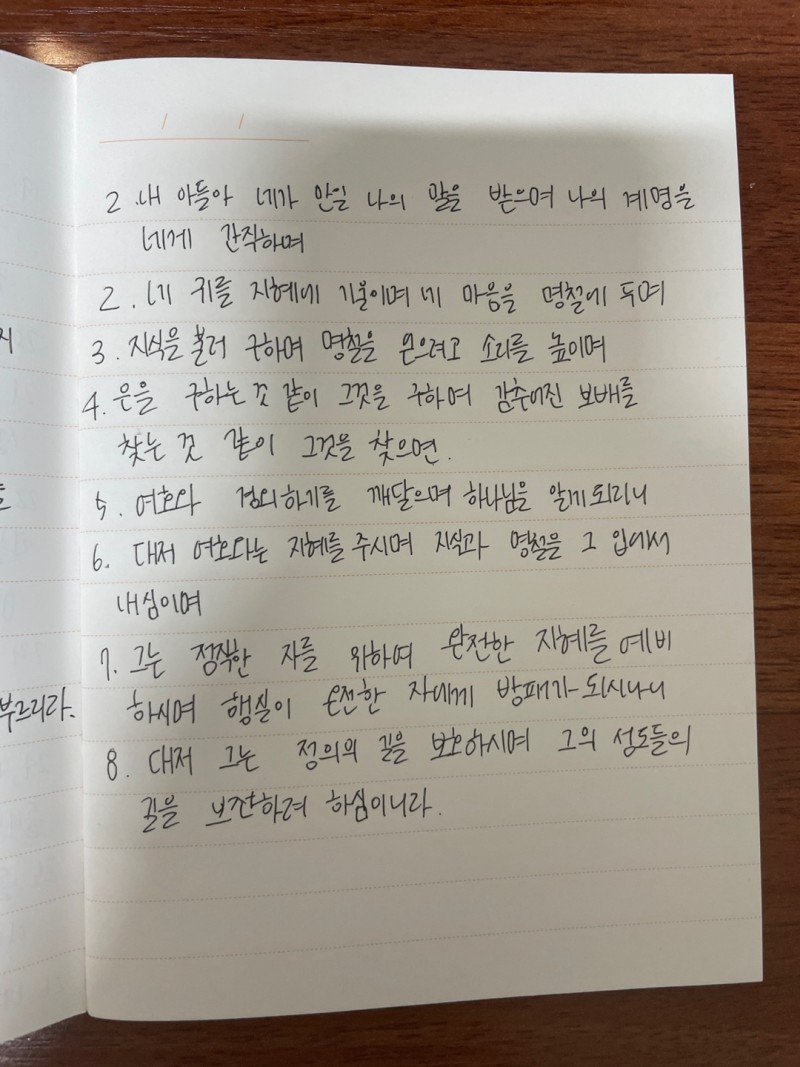 2. 내 아들아 네가 만일 나의 말을 받으며 나의 계명을
네게 간직하며
2. 네 귀를 지혜에 기울이며 네 마음을 명철에 두며
3. 지식을 불러 구하며 명철을 얻으려고 소리를 높이며
4. 은을 구하는 것 같이 그것을 구하여 감추어진 보배를
찾는 것 같이 그것을 찾으면.
5. 여호와 경외하기를 깨달으며 하나님을 알게 되리니
6. 대저 여호와는 지혜를 주시며 지식과 명철을 그 입에서
내심이며
7. 그는 정직한 자를 위하여 완전한 지혜를 예비
하시며 행실이 온전한 자에게 방패가 되시나니
8. 대저 그는 정의의 길을 보호하시며 그의 성도들의
길을 보전하려 하심이니라.
부르리라.